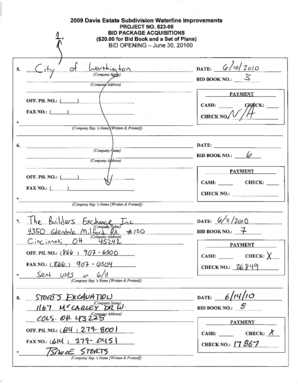 2009 Davis Estate Subdivision Waterline Improvements
PROJECT NO. 523-05
BID PACKAGE ACQUISITIONS
($20.00 for Bid Book and a Set of Plans)
BID OPENING – June 30, 20100
5. City of Worthington
(Company Name)
DATE: 6/10/2010
BID BOOK NO.:
(Company Address)
OFF. PH. NO.: ( )
FAX NO.: ( )
PAYMENT
CASH: CHECK:
CHECK NO.: N/A
(Company Rep.'s Name [Written & Printed])
6.
(Company Name)
DATE:
BID BOOK NO.: 6
(Company Address)
OFF. PH. NO.: ( )
FAX NO.: ( )
PAYMENT
CASH: CHECK:
CHECK NO.:
(Company Rep.'s Name [Written & Printed])
7. The Builders Exchange Inc
(Company Name)
DATE: 6/11/2010
4350 Glendale Milford Rd #120
(Company Address)
BID BOOK NO.: 7
Cincinnati, OH 45242
OFF. PH. NO.: (866) 907-6300
FAX NO.: (866) 907-6304
PAYMENT
CASH: CHECK: X
CHECK NO.: 36849
Sent USPS on 6/11
(Company Rep.'s Name [Written & Printed])
8. STORTS EXCAVATION
(Company Name)
DATE: 6/14/10
1167 McCARLEY DR W
(Company Address)
BID BOOK NO.: 8
COLS. OH 43228
OFF. PH. NO.: (614) 279-8001
FAX NO.: (614) 279-0451
PAYMENT
CASH: CHECK: X
CHECK NO.: 17867
STORTS
(Company Rep.'s Name [Written & Printed])